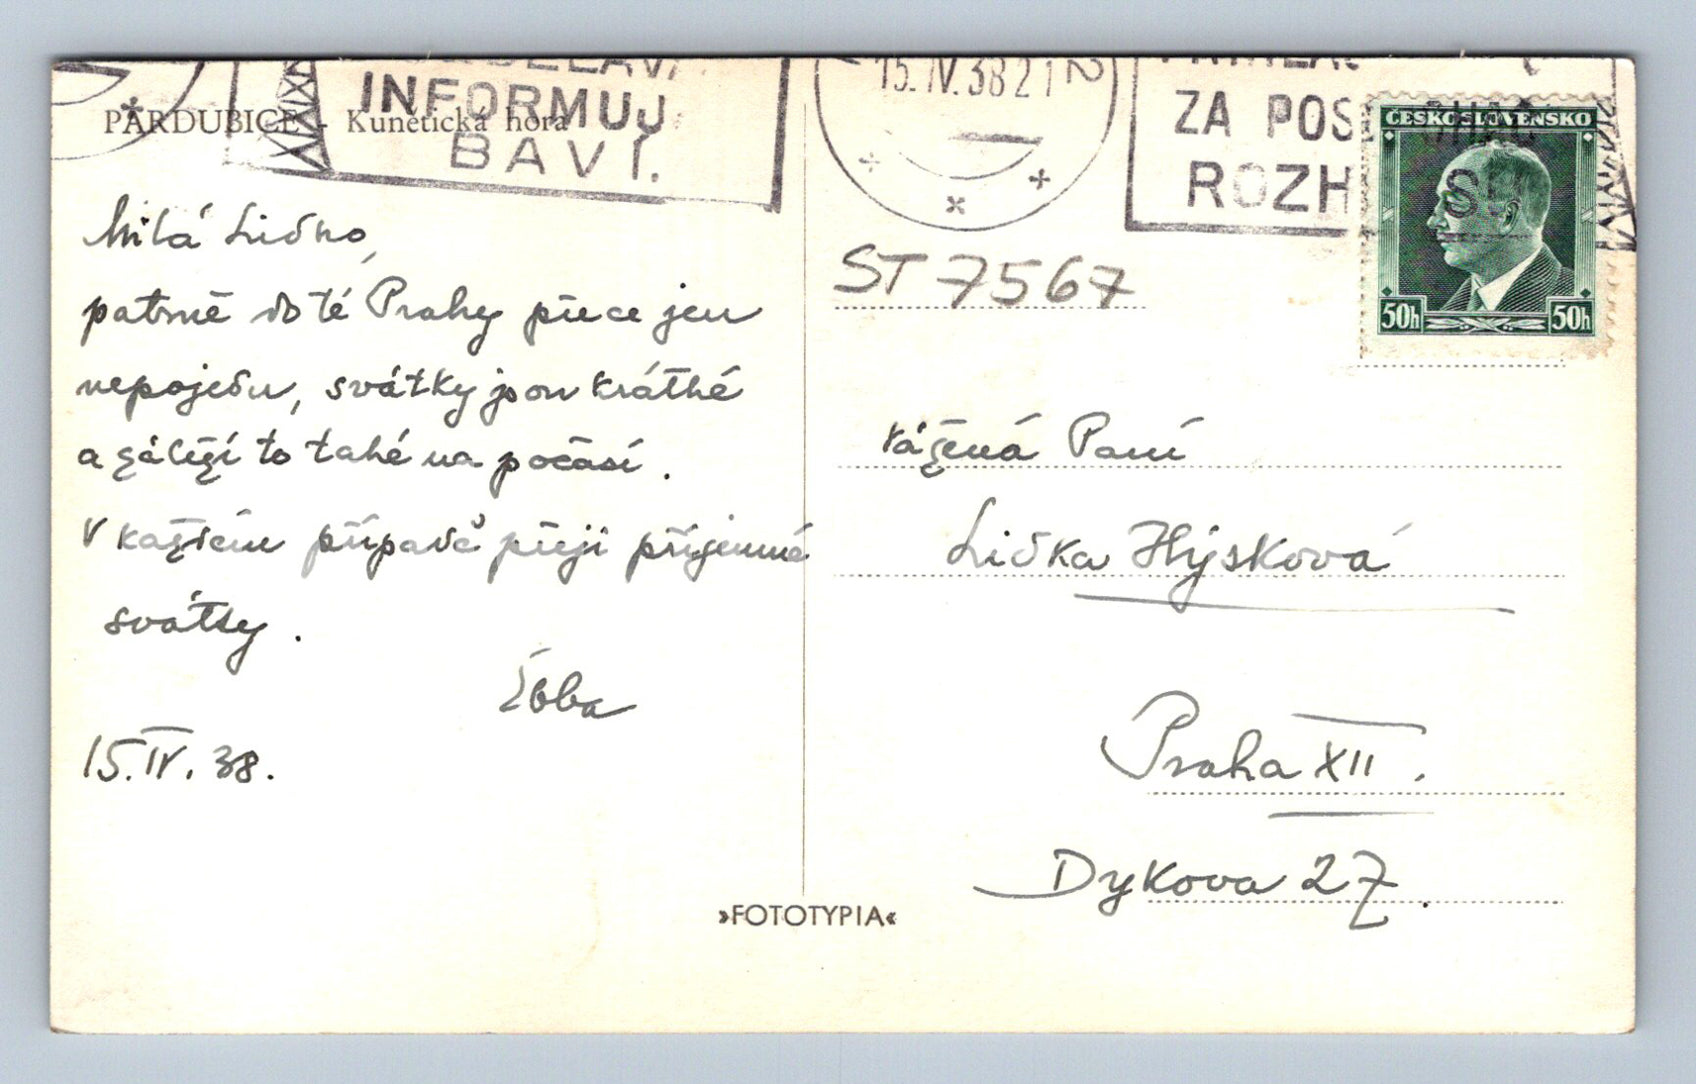 INFORMUJ
BAVÍ.
PARDUBICE - Kunětická hora
15.IV.38 21
ZA POS
ROZH
ČESKOSLOVENSKO
50h 50h
Milá Lidko,
patrně do té Prahy přece jen
nepojedu, svátky jsou krátké
a záleží to také na počasí.
V každém případě přeji příjemné
svátky.
15.IV.38.
ST 7567
Vážená Paní
Lidka Hýsková
Praha XII.
Dykova 27.
»FOTOTYPIA«